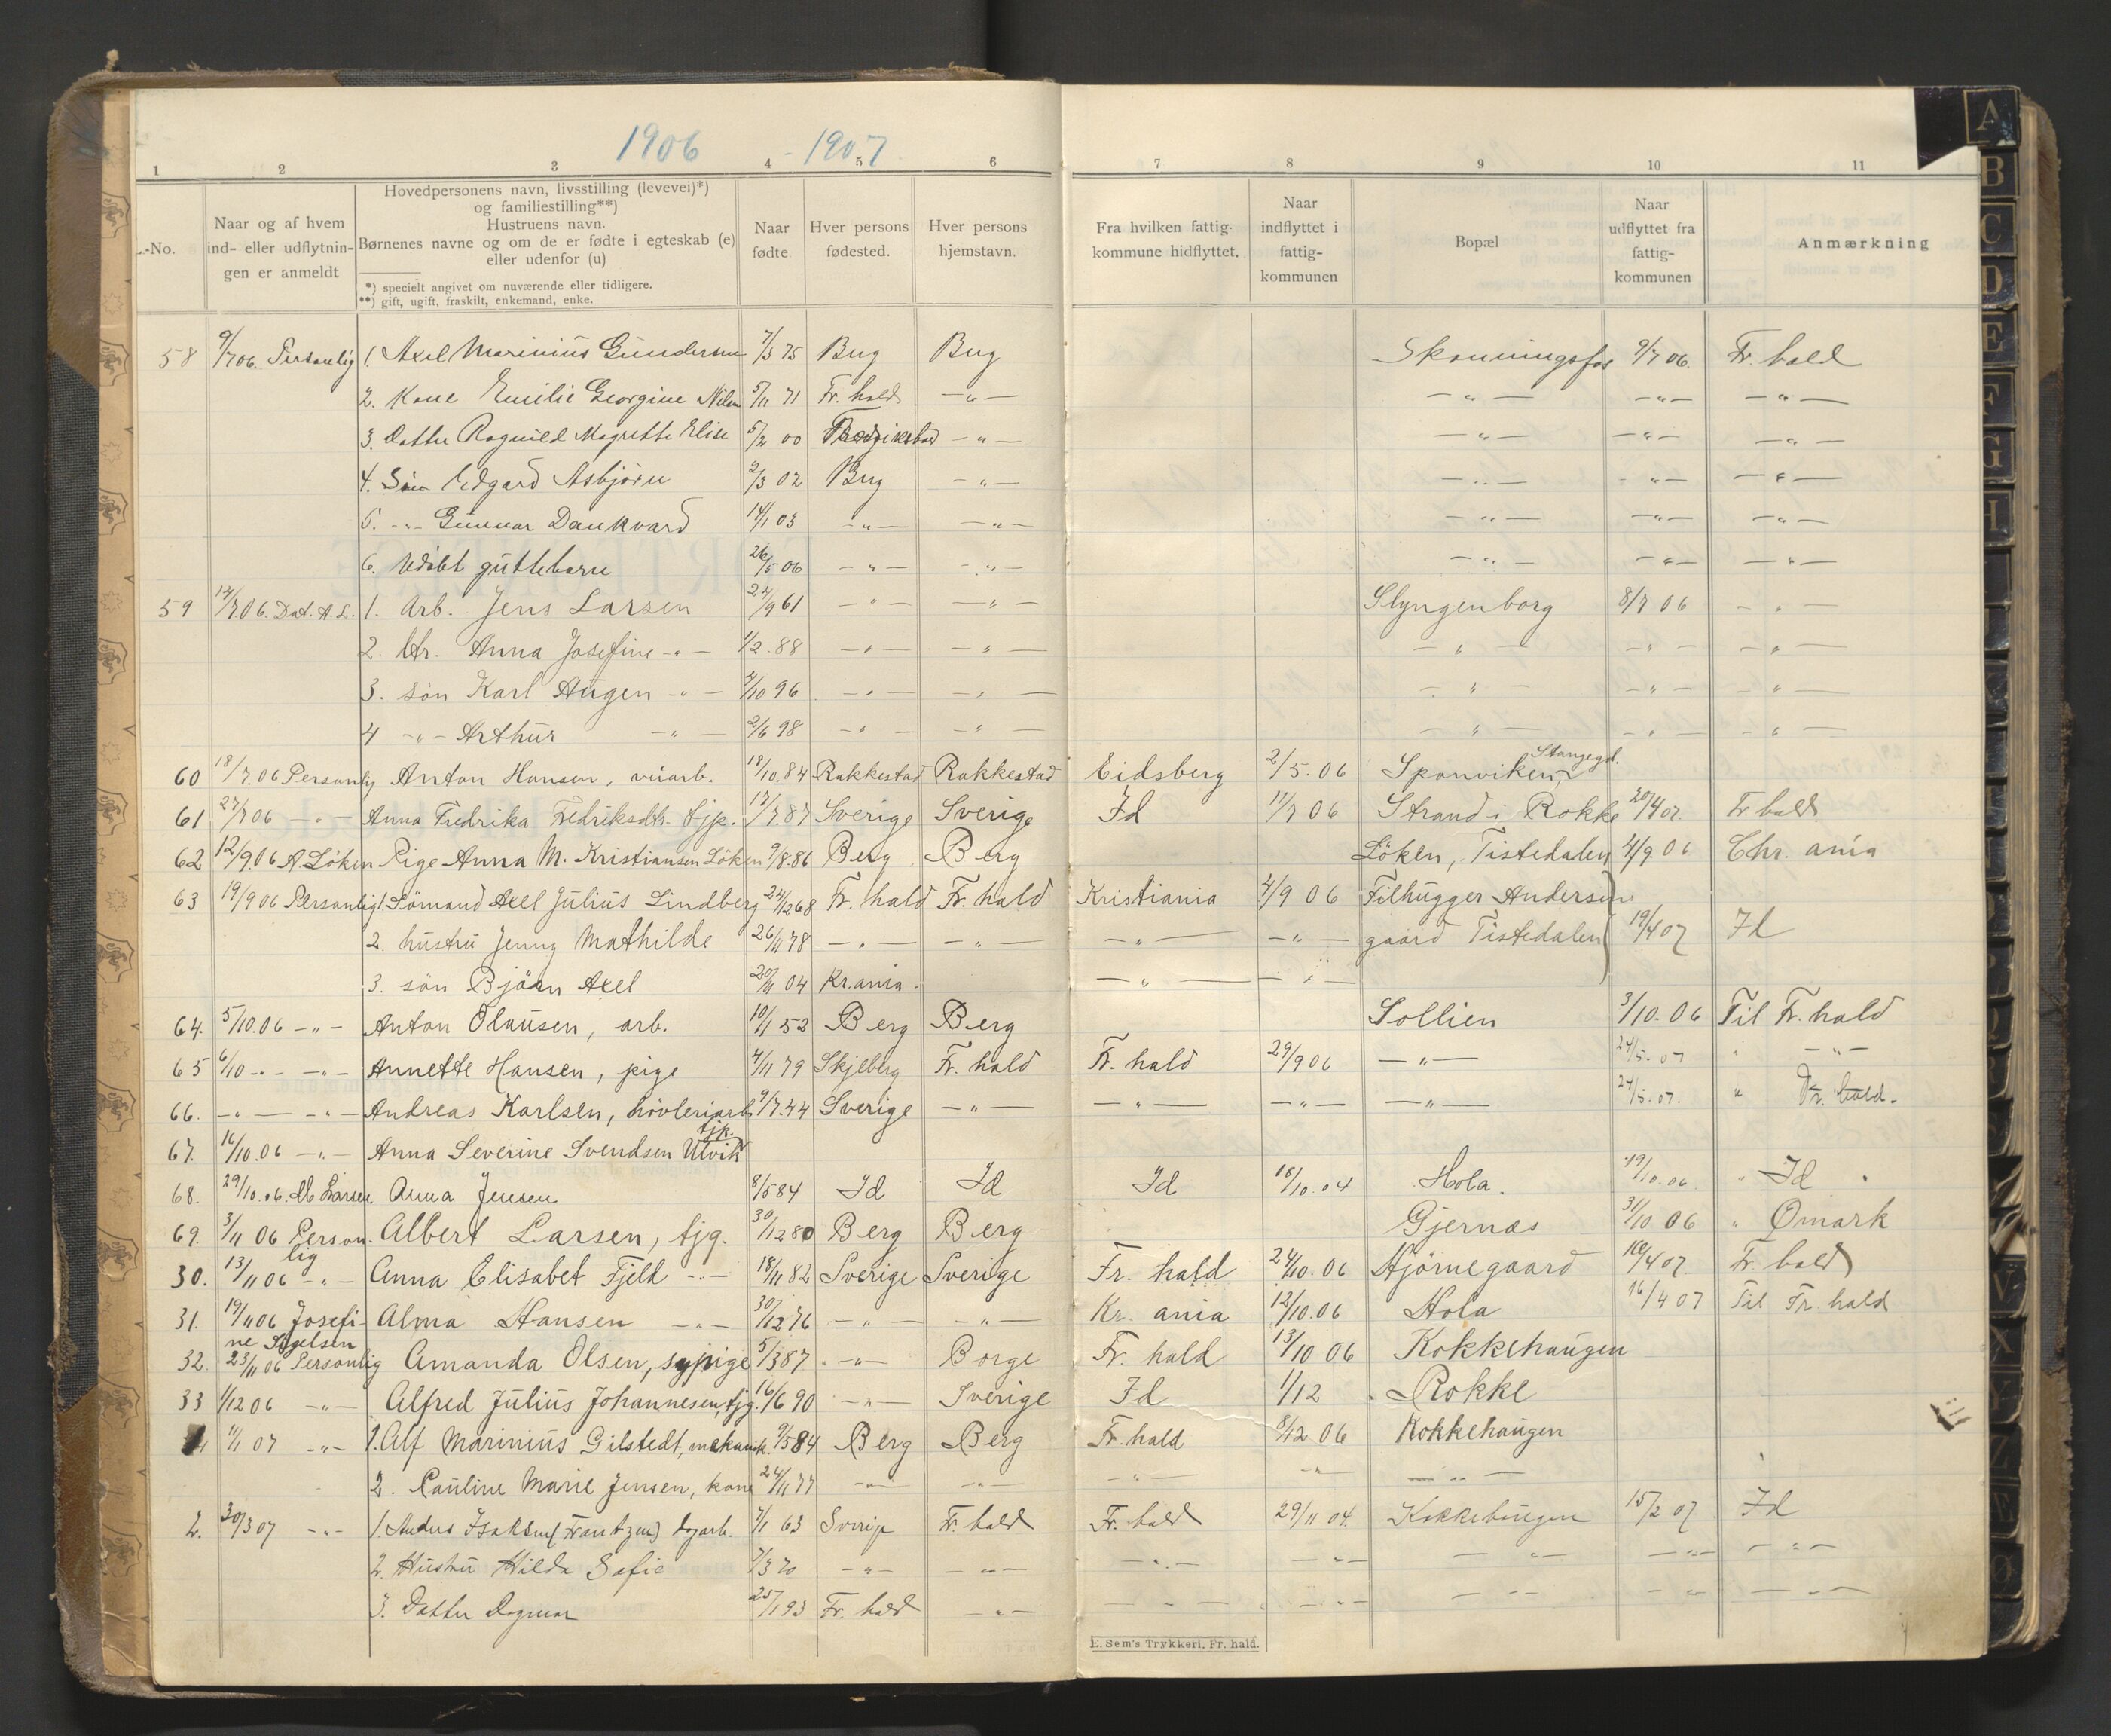 1906 - 1907
1 2 3 4 5 6 7 8 9 10 11
L.-No.
Naar og af hvem ind- eller udflytnin- gen er anmeldt
Hovedpersonens navn, livsstilling (levevei)*)
og familiestilling**)
Hustruens navn.
Børnenes navne og om de er fødte i egteskab (e)
eller udenfor (u)
*) specielt angivet om nuværende eller tidligere.
**) gift, ugift, fraskilt, enkemand, enke.
Naar fødte
Hver persons fødested.
Hver persons hjemstavn.
Fra hvilken fattig- kommune hidflyttet.
Naar indflyttet i fattig- kommunen
Bopæl
Naar udflyttet fra fattig- kommunen
Anmærkning
58 9/7 06. Personlig 1. Axel Marinius Gundersen 7/3 75 Berg Berg Skonningsfos 9/7 06. Fr. hald
2. Kone Emilie Georgine Nilsen 5/11 71 Fr. hald -"- -"- -"- -"-
3. Datter Ragnild Magrethe Elise 5/2 00 Fredrikstad -"- -"- -"- -"-
4. Søn Edgard Asbjørn 2/3 02 Berg -"- -"- -"- -"-
5. -"- Gunnar Dankvard 14/1 03 -"- -"- -"- -"- -"-
6. Udöbt guttebarn 26/5 06 -"- -"- -"- -"- -"-
59 12/7.06. Dat. A. L. 1. Arb. Jens Larsen 24/9 61 -"- -"- Slyngenborg 8/7 06 -"-
2. dtr. Anna Josefine -"- 1/2.88 -"- -"- -"- -"- -"-
3. søn Karl Augen -"- 4/10 96 -"- -"- -"- -"- -"-
4 -"- Arthur -"- 2/6 98 -"- -"- -"- -"- -"-
60 18/7.06 Personlig Anton Hansen, veiarb. 18/10.84 Rakkestad Rakkestad Eidsberg 2/5.06 Sponviken, Stangegd.
61 27/7 06 -"- Anna Fredrika Fredriksdtr. tjp. 12/7.87 Sverige Sverige Id 17/7 06 Strand i Rokke 20/4 07. Fr hald
62 12/9.06 A. Löken Pige Anna M. Kristiansen Löken 9/8.86 Berg Berg Löken, Tistedalen 4/9 06 Chr. ania
63 19/9 06 Personlig 1. Sömand Axel Julius Lindberg 24/12 68 Fr. hald Fr. hald Kristiania 4/9 06 Filhugger Andersen
2. hustru Jenny Mathilde 26/11 78 -"- -"- -"- -"- gaard Tistedalen 19/4 07 Id
3. søn Björn Axel 20/11 04 Kr.ania. -"- -"-
64. 5/10.06 -"- Anton Olausen, arb. 10/1 52 Berg Berg Sollien 3/10.06 Til Fr. hald
65 6/10 -"- -"- Annette Hansen, pige 4/11 79 Skjeberg Fr. hald Fr. hald 29/9 06 -"- 24/5.07 " -"-
66. -"- -"- Andreas Karlsen, hövleriarb 9/7.44 Sverige -"- -"- -"- -"- 24/5.07. " Fr. hald.
67. 16/10.06 -"- Anna Severine Svendsen Ulvik tjp.
68. 29/10.06. Larsen Anna Jensen 8/5 84 Id Id Id 18/10.04 Hola. 19/10.06 " Id "
69. 3/11 06 Person- lig Albert Larsen, tjg. 30/12 80 Berg Berg Gjernæs 31/10 06 " Ømark
30. 13/11 06 -"- Anna Elisabet Fjeld -"- 18/11 82 Sverige Sverige Fr. hald 24/10.06 Hjörnegaard 10/4 07 Fr. hald
31. 19/11 06 Josefi- Alma Hansen -"- 30/12 76 -"- -"- Kr. ania 12/10.06 Hola 16/4 07 Til Fr. hald
32. 23/11 06 Personlig Amanda Olsen, sypige 5/3 87 -"- Borge Fr. hald 13/10 06 Kokkehaugen
33 1/12 06 -"- Alfred Julius Johannesen, tjg. 16/6 90 -"- Sverige Id 1/12 Rokke
11/1 07 -"- 1. Alf Marinius Gilstedt, mekanik. 9/5 84 Berg Berg Fr. hald 8/12 06 Kokkehaugen
2. Pauline Marie Jensen, kone 24/11 77 -"- -"- -"- -"- -"-
2. 30/3 07 -"- 1. Anders Isaksen (Frantzen) dagarb. 7/1 63 Sverige Fr. hald Fr. hald 29/11 04. Kokkehaugen 15/2 07 Id
2. Hustru Hilda Sofie 7/3 70 -"- -"- -"- -"- -"- -"- -"-
3. Datter Dagmar 25/1 93 Fr. hald -"- -"- -"- -"- -"- -"-
E. Sem's Trykkeri, Fr. hald.
A
B
C
D
E
F
G
H